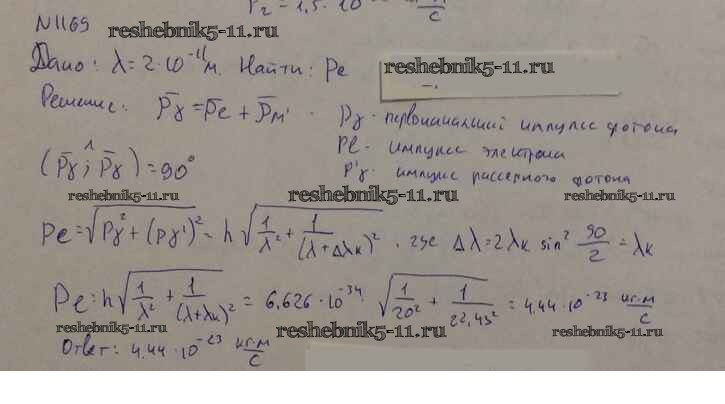 P₂ = 1,5 · 10 кг·м/с
N1169
reshebnik5-11.ru
Дано: λ = 2·10⁻¹¹ м. Найти: Pe
reshebnik5-11.ru
Решение: p̄γ = p̄e + p̄м' · pγ - первоначальный импульс фотона
Pe - импульс электрона
(p̄γ ; p̄γ) = 90° p'γ - импульс рассеянного фотона
reshebnik5-11.ru reshebnik5-11.ru reshebnik5-11.ru
Pe = √(pγ² + (pγ')²) = h√(1/λ² + 1/(λ+Δλк)²) , где Δλ = 2λк sin² 90/2 = λк
Pe = h√(1/λ² + 1/(λ+λк)²) = 6,626·10⁻³⁴ · √(1/20² + 1/22,43²) = 4,44·10⁻²³ кг·м/с
reshebnik5-11.ru reshebnik5-11.ru reshebnik5-11.ru
Ответ: 4,44·10⁻²³ кг·м/с